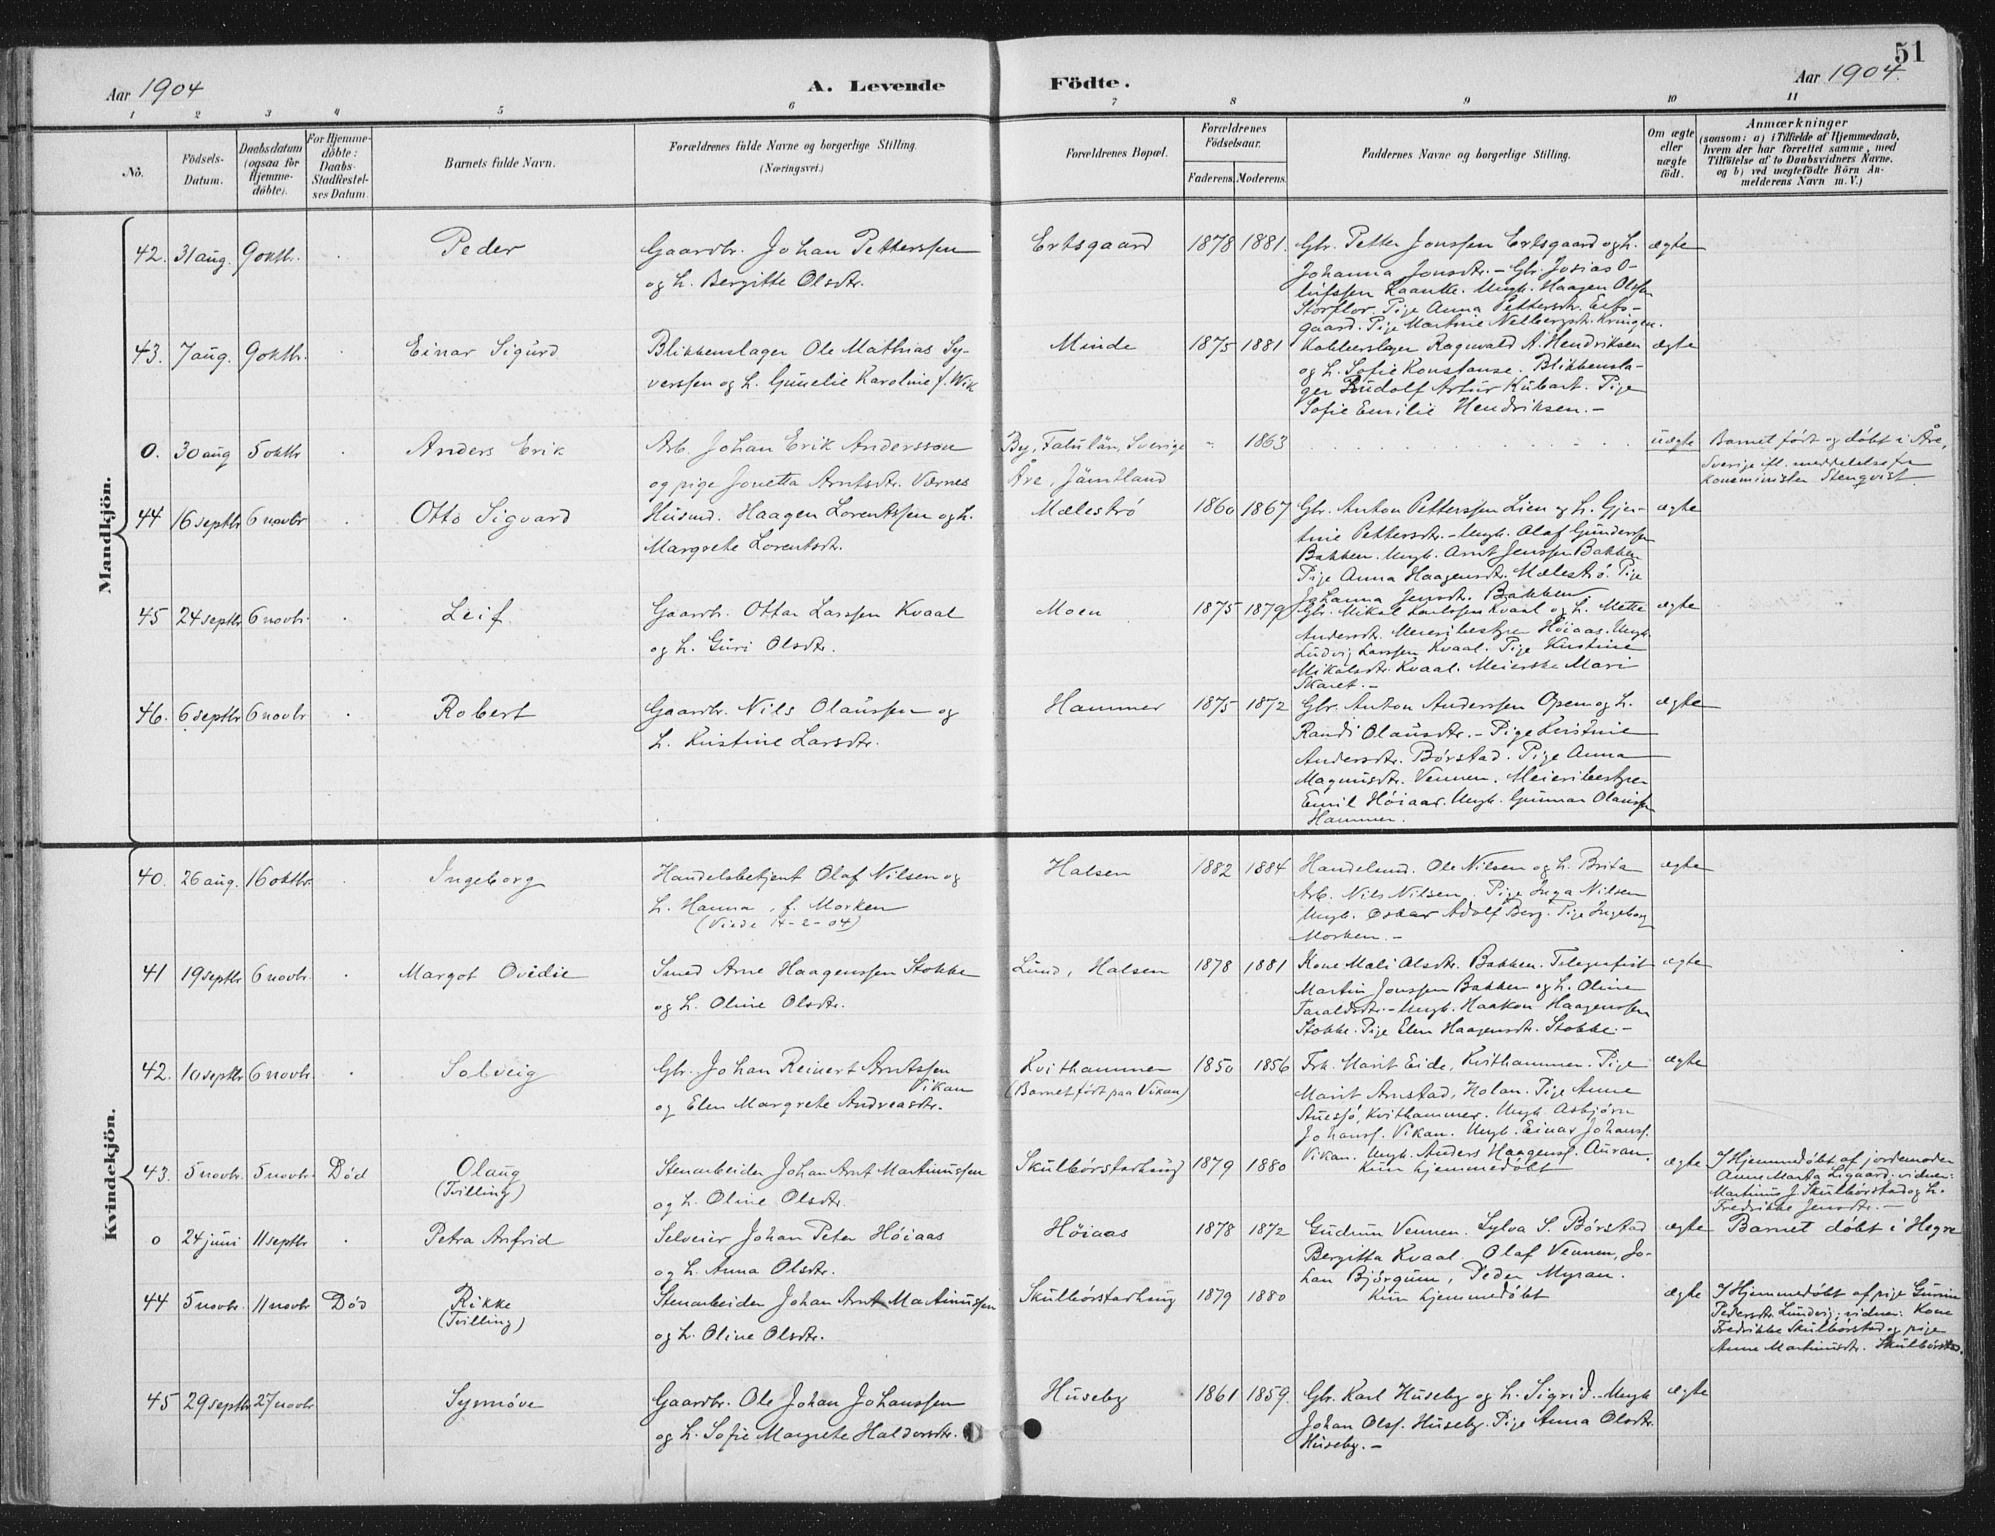 51
Aar 1904
A. Levende Födte.
Aar 1904.
1 2 3 4 5 6 7 8 9 10 11
No.
Födsels-Datum.
Daabsdatum (ogsaa for Hjemme-döbte).
For Hjemme-döbte: Daabs-Stadfæstel-ses Datum.
Barnets fulde Navn.
Forældrenes fulde Navne og borgerlige Stilling.
(Næringsvei.)
Forældrenes Bopæl.
Forældrenes Födselsaar.
Faderens. Moderens.
Faddernes Navne og borgerlige Stilling.
Om ægte eller uægte födt.
Anmærkninger
(saasom: a) i Tilfælde af Hjemmedaab,
hvem der har forrettet samme, med
Tilföielse af to Daabsvidners Navne.
og b) ved uægtefödte Börn An-
melderens Navn m. V.)
Mandkjön.
42. 31 aug. 9 oktbr. Peder
Gaardbr. Johan Petterssen
og h. Bergitte Olsdtr.
Ertsgaard 1878 1881.
Gbr. Petter Jonssen Ertsgaard og h.
Johanna Jonsdtr. – Gbr. Josias O-
lufssen Raanke. Ungk. Haagen Olssen
Storflor. Pige Anna Pettersdtr. Erts-
gaard. Pige Martine Kringen.
ægte
43. 7 aug. 9 oktbr. Einar Sigurd
Blikkenslager Ole Mathias Sy-
verssen og h. Gunelie Karoline f. Wik
Minde 1875 1881
Kobberslager Ragnvald A. Hendriksen
og h. Sofie Konstanse. Blikkensla-
ger Rudolf Artur Kubart. Pige
Sofie Emilie Hendriksen. –
ægte
0. 30 aug 5 oktbr Anders Erik
Arb. Johan Erik Andersson
og pige Jonetta Arntsdtr. Værnes
By, Falulän, Sverige
Åre, Jämtland
- 1863
uægte
Barnet født og døbt i Åre,
Sverige ifl. meddelelse fra
Komminister Stenqvist
44 16 septbr 6 novbr Otto Sigvard
Husmd. Haagen Lorentssen og h.
Margrete Lorentsdtr.
Mæleströ 1860 1867
Gbr. Anton Petterssen Lien og h. Gjer-
tine Pettersdtr. – Ungk. Olaf Gunderssen
Bakken. Ungk. Arnt Jenssen Bakken
Pige Anna Haagensdtr. Mæleströ. Pige
Johanna Jensdtr. Bakken
ægte
45 24 septbr 6 novbr. Leif
Gaardbr. Ottar Larssen Kvaal
og h. Guri Olsdtr.
Moen 1875 1879
Gbr. Mikal Karlssen Kvaal og h. Mette
Andersdtr. Meieribestyrer Höiaas. Ungk.
Ludvig Larssen Kvaal. Pige Kirstine
Mikalsdtr. Kvaal. Meierske Mari
Skaret. –
ægte
46. 6 septbr 6 novbr Robert
Gaardbr. Nils Olaussen og
h. Kristine Larsdtr.
Hammer 1875 1872
Gbr. Anton Anderssen Opem og h.
Randi Olausdtr. – Pige Kirstine
Andersdtr. Börstad. Pige Anna
Magnusdtr. Vennen. Meieribestyrer
Emil Höiaas. Ungk. Gunnar Olaussen
Hammer.
ægte
Kvindekjön.
40. 26 aug. 16 oktbr. Ingeborg
Handelsbetjent Olaf Nilsen og
h. Hanna, f. Morken
(Viede 14-2-04)
Halsen 1882 1884
Handelsmd. Ole Nilsen og h. Brita
Arb. Nils Nilsen. Pige Inga Nilsen
Ungk. Oskar Adolf Berg. Pige Ingeborg
Morken. –
ægte
41 19 septbr 6 novbr. Margot Ovidie
Smed Arne Haagenssen Stokke
og h. Oline Olsdtr.
Lund, Halsen 1878 1881
Kone Mali Olsdtr. Bakken. Telegrafist
Martin Jonssen Bakken og h. Oline
Taraldsdtr. – Ungk. Haakon Haagenssen
Stokke. Pige Elen Haagensdtr. Stokke. –
ægte
42. 10 septbr 6 novbr. Solveig
Gbr. Johan Reinert Arntssen
Vikan
og Elen Margrete Andreasdtr.
Kvithammer
(Barnet født paa Vikan)
1850 1856
Frk. Marit Eide, Kvithammer. Pige
Marit Arnstad, Holan. Pige Anne
Kvithammer. Ungk. Asbjörn
Johanss. Vikan. Ungk. Einar Johanss.
Vikan. Ungk. Anders Haagenss. Auran.
ægte
43. 5 novbr. 5 novbr. Död Olaug
(Tvilling)
Stenarbeider Johan Arnt Martinussen
og h. Oline Olsdtr.
Skulbörstadhaug 1879 1880
Kun hjemmedöbt
ægte
Hjemmedöbt af jordemoder
Anne Marta Ligaard; vidner:
Martinus J. Skulbörstad og h.
Fredrikke Jensdtr. –
0 24 juni 11 septbr Petra Anfrid
Selveier Johan Peter Höiaas
og h. Anna Olsdtr.
Höiaas 1878 1872
Gudrun Vennen. Sylva S. Börstad
Bergitta Kvaal. Olaf Vennen, Jo-
han Björgum, Peder Myran.
ægte
Barnet döbt i Hegre
44 5 novbr. 11 novbr Död Rikke
(Tvilling)
Stenarbeider Johan Arnt Martinussen
og h. Oline Olsdtr.
Skulbörstadhaug 1879 1880
Kun hjemmedöbt
ægte
Hjemmedöbt af pige
Pedersdtr. Lundvig; vidner: Kone
Fredrikke Skulbörstad og pige
Anne Martinusdtr. Skulbörstad.
45 29 septbr 27 novbr Synnöve
Gaardbr. Ole Johan Johanssen
og h. Sofie Margrete Haldorsdtr.
Huseby 1861 1859.
Gbr. Karl Huseby og h. Sigrid. – Ungk
Johan Olss. Huseby. Pige Anna Olsdtr.
Huseby. –
ægte